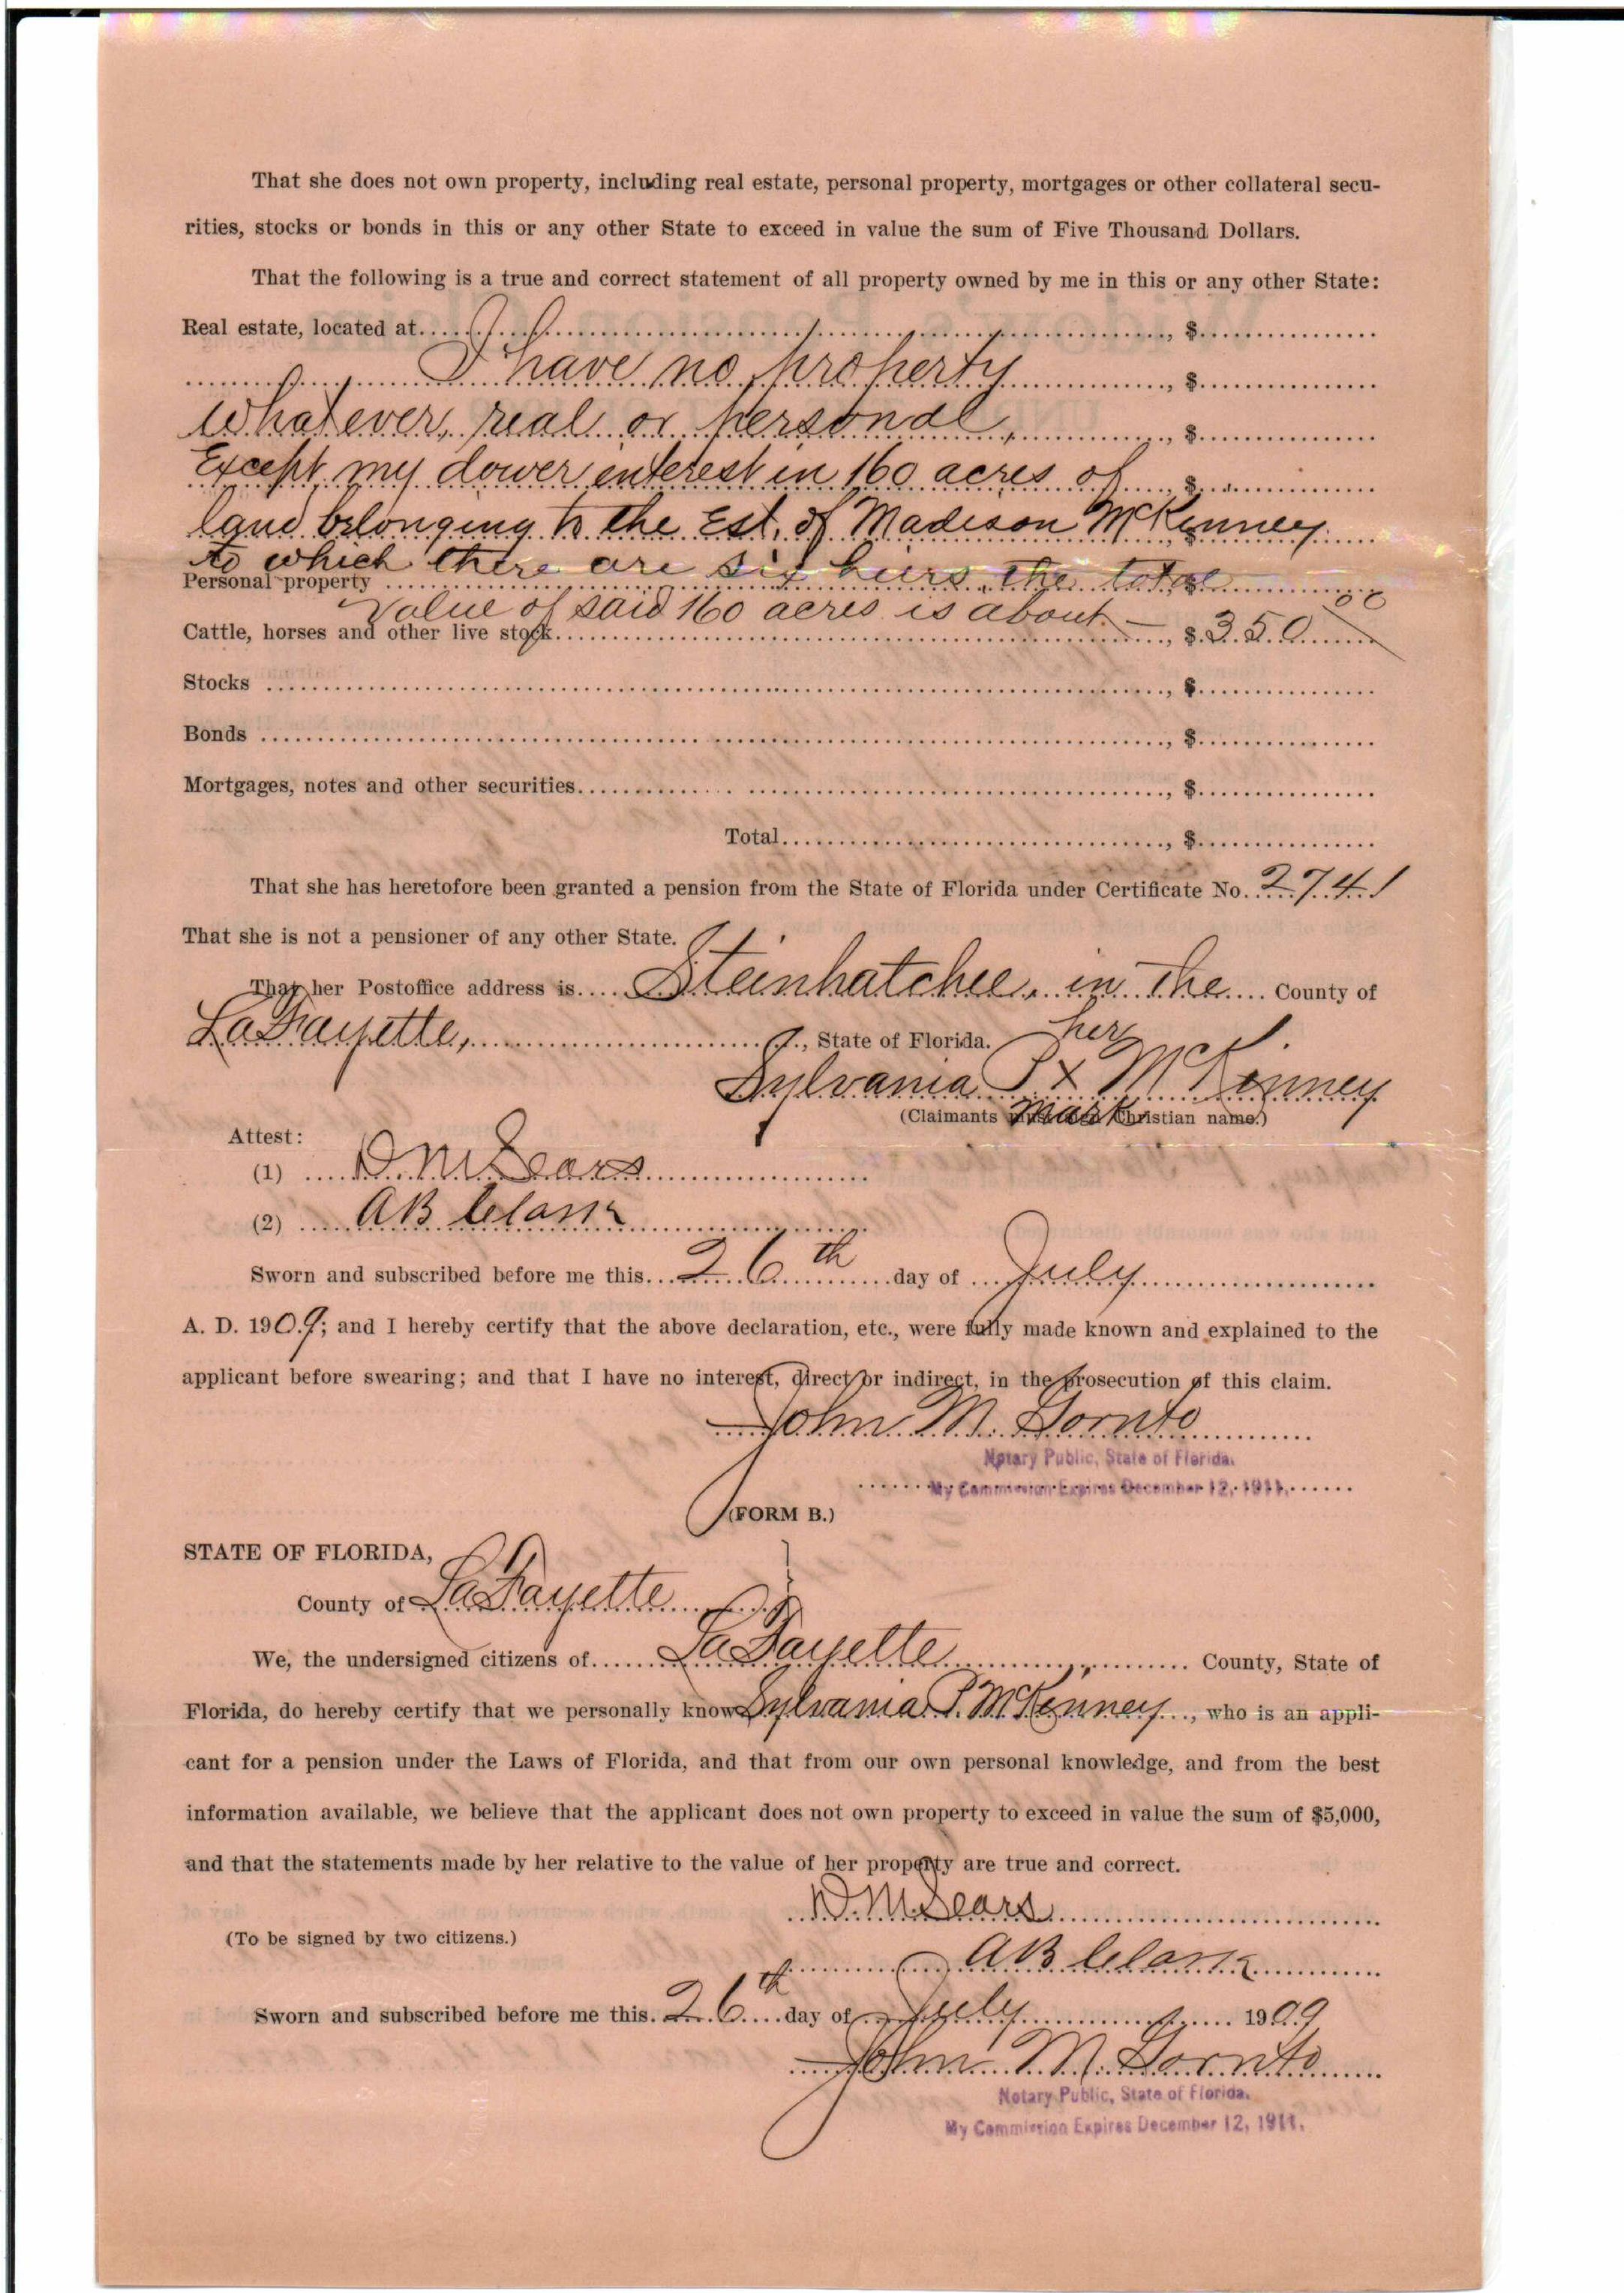 That she does not own property, including real estate, personal property, mortgages or other collateral secu-
rities, stocks or bonds in this or any other State to exceed in value the sum of Five Thousand Dollars.
That the following is a true and correct statement of all property owned by me in this or any other State:
Real estate, located at ..., $...
I have no property ..., $...
whatever, real or personal, ..., $...
Except my dower interest in 160 acres of ... $...
land belonging to the Est. of Madison McKinney
to which there are six heirs, the total
Personal property ... $...
Value of said 160 acres is about —
Cattle, horses and other live stock..., $350 00
Stocks ..., $...
Bonds ..., $...
Mortgages, notes and other securities..., $...
Total..., $...
That she has heretofore been granted a pension from the State of Florida under Certificate No. 2741
That she is not a pensioner of any other State.
That her Postoffice address is Steinhatchee, in the County of
LaFayette, ..., State of Florida.
her
Sylvania P x McKinney
mark
(Claimants must sign Christian name.)
Attest:
(1) D. M. Sears
(2) AB
Sworn and subscribed before me this 26th day of July
A. D. 1909; and I hereby certify that the above declaration, etc., were fully made known and explained to the
applicant before swearing; and that I have no interest, direct or indirect, in the prosecution of this claim.
John M. Gornto
Notary Public, State of Florida.
My Commission Expires December 12, 1911.
(FORM B.)
STATE OF FLORIDA,
County of LaFayette
We, the undersigned citizens of LaFayette County, State of
Florida, do hereby certify that we personally know Sylvania P. McKinney, who is an appli-
cant for a pension under the Laws of Florida, and that from our own personal knowledge, and from the best
information available, we believe that the applicant does not own property to exceed in value the sum of $5,000,
and that the statements made by her relative to the value of her property are true and correct.
D. M. Sears
(To be signed by two citizens.)
AB
Sworn and subscribed before me this 26th day of July 1909
John M. Gornto
Notary Public, State of Florida.
My Commission Expires December 12, 1911.